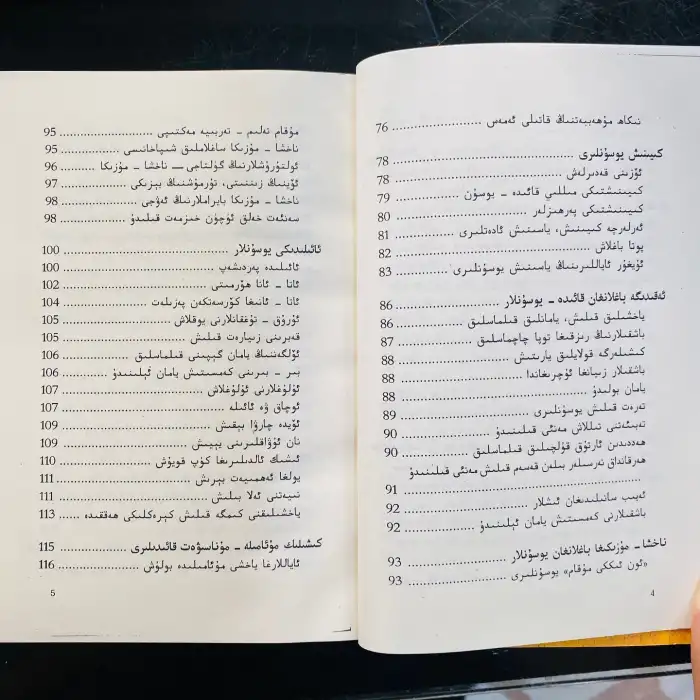 نىكاھ مۇھەببەتنىڭ قاتىلى ئەمەس ........................ 76
كىيىنىش يوسۇنلىرى ........................ 78
ئۆزىنى قەدىرلەش ........................ 78
كىيىنىشتىكى مىللىي قائىدە - يوسۇن ........................ 79
كىيىنىشتىكى پەرھىزلەر ........................ 80
ئەرلەرچە كىيىنىش، ياسىنىش ئادەتلىرى ........................ 81
پوتا باغلاش ........................ 82
ئۇيغۇر ئاياللىرىنىڭ ياسىنىش يوسۇنلىرى ........................ 83
ئەقىدىگە باغلانغان قائىدە - يوسۇنلار ........................ 86
ياخشىلىق قىلىش، يامانلىق قىلماسلىق ........................ 86
باشقىلارنىڭ رىزقىغا توپا چاچماسلىق ........................ 87
كىشىلەرگە قولايلىق يارىتىش ........................ 88
باشقىلار زىيانغا ئۇچرىغاندا! ........................ 88
يامان بولىدۇ ........................ 88
تەرەت قىلىش يوسۇنلىرى ........................ 89
تەبىئەتنى تىللاش مەنئى قىلىنىدۇ ........................ 90
ھەددىدىن ئارتۇق قۇلچىلىق قىلماسلىق ........................ 90
ھەرقانداق نەرسىلەر بىلەن قەسەم قىلىش مەنئى قىلىنىدۇ
........................ 91
ئەيىب سانىلىدىغان ئىشلار ........................ 92
باشقىلارنى كەمسىتىش يامان ئېلىنىدۇ ........................ 92
ناخشا - مۇزىكىغا باغلانغان يوسۇنلار ........................ 93
«ئون ئىككى مۇقام» يوسۇنلىرى ........................ 93
4
مۇقام تەلىم - تەربىيە مەكتىپى ........................ 95
ناخشا - مۇزىكا ساغلاملىق شىپاخانىسى ........................ 95
ئولتۇرۇشلارنىڭ گۈلتاجى — ناخشا - مۇزىكا ........................ 96
ئۆينىڭ زىننىتى، تۇرمۇشنىڭ بېزىكى ........................ 97
ناخشا - مۇزىكا بايراملارنىڭ ئەۋجى ........................ 98
سەنئەت خەلق ئۈچۈن خىزمەت قىلىدۇ ........................ 98
ئائىلىدىكى يوسۇنلار ........................ 100
ئائىلىدە پەردىشەپ ........................ 100
ئاتا - ئانا ھۆرمىتى ........................ 102
ئاتا - ئانىغا كۆرسەتكەن پەزىلەت ........................ 104
ئۇرۇق - تۇغقانلارنى يوقلاش ........................ 105
قەبرىنى زىيارەت قىلىش ........................ 105
ئۆلگەننىڭ يامان گېپىنى قىلماسلىق ........................ 106
بىر - بىرىنى كەمسىتىش يامان ئېلىنىدۇ ........................ 106
ئۇلۇغلارنى ئۇلۇغلاش ........................ 107
ئوچاق ۋە ئائىلە ........................ 107
ئۆيدە چارۋا بېقىش ........................ 109
نان ئۇۋاقلىرىنى يېيىش ........................ 109
ئىشىك ئالدىلىرىغا كۆپ قويۇش ........................ 110
يولغا ئەھمىيەت بېرىش ........................ 111
نىيەتنى ئەلا بىلىش ........................ 111
ياخشىلىقنى كىمگە قىلىش كېرەكلىكى ھەققىدە ........................ 113
كىشىلىك مۇئامىلە - مۇناسىۋەت قائىدىلىرى ........................ 115
ئاياللارغا ياخشى مۇئامىلىدە بولۇش ........................ 116
5